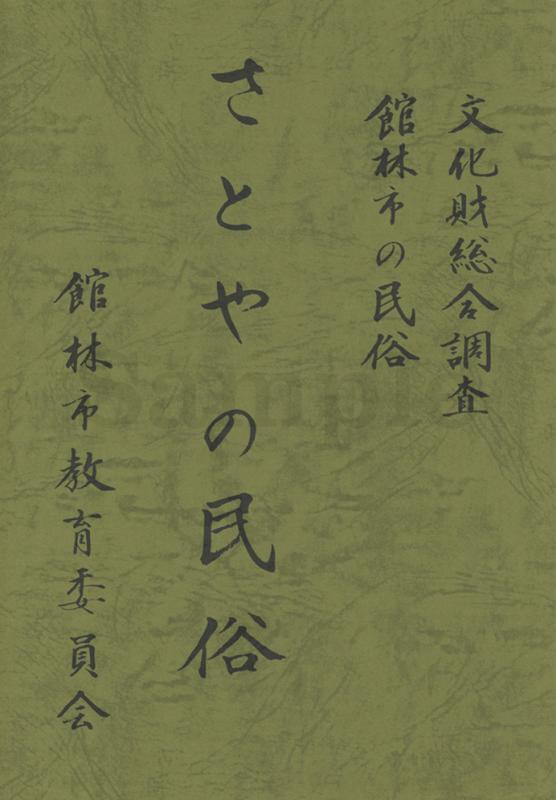 文化財総合調査
館林市の民俗
さとやの民俗
館林市教育委員会
Sample